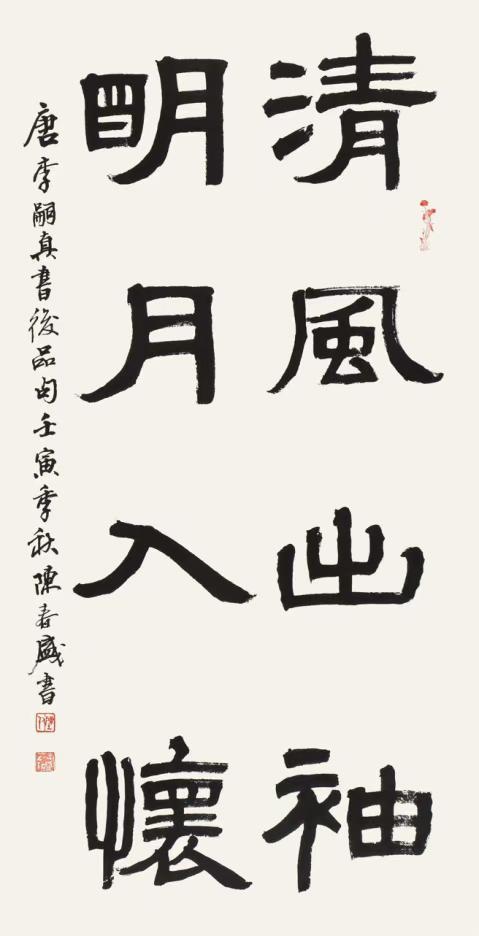 清風出袖
明月入懷
唐李嗣真書後品句壬寅季秋陳春盛書